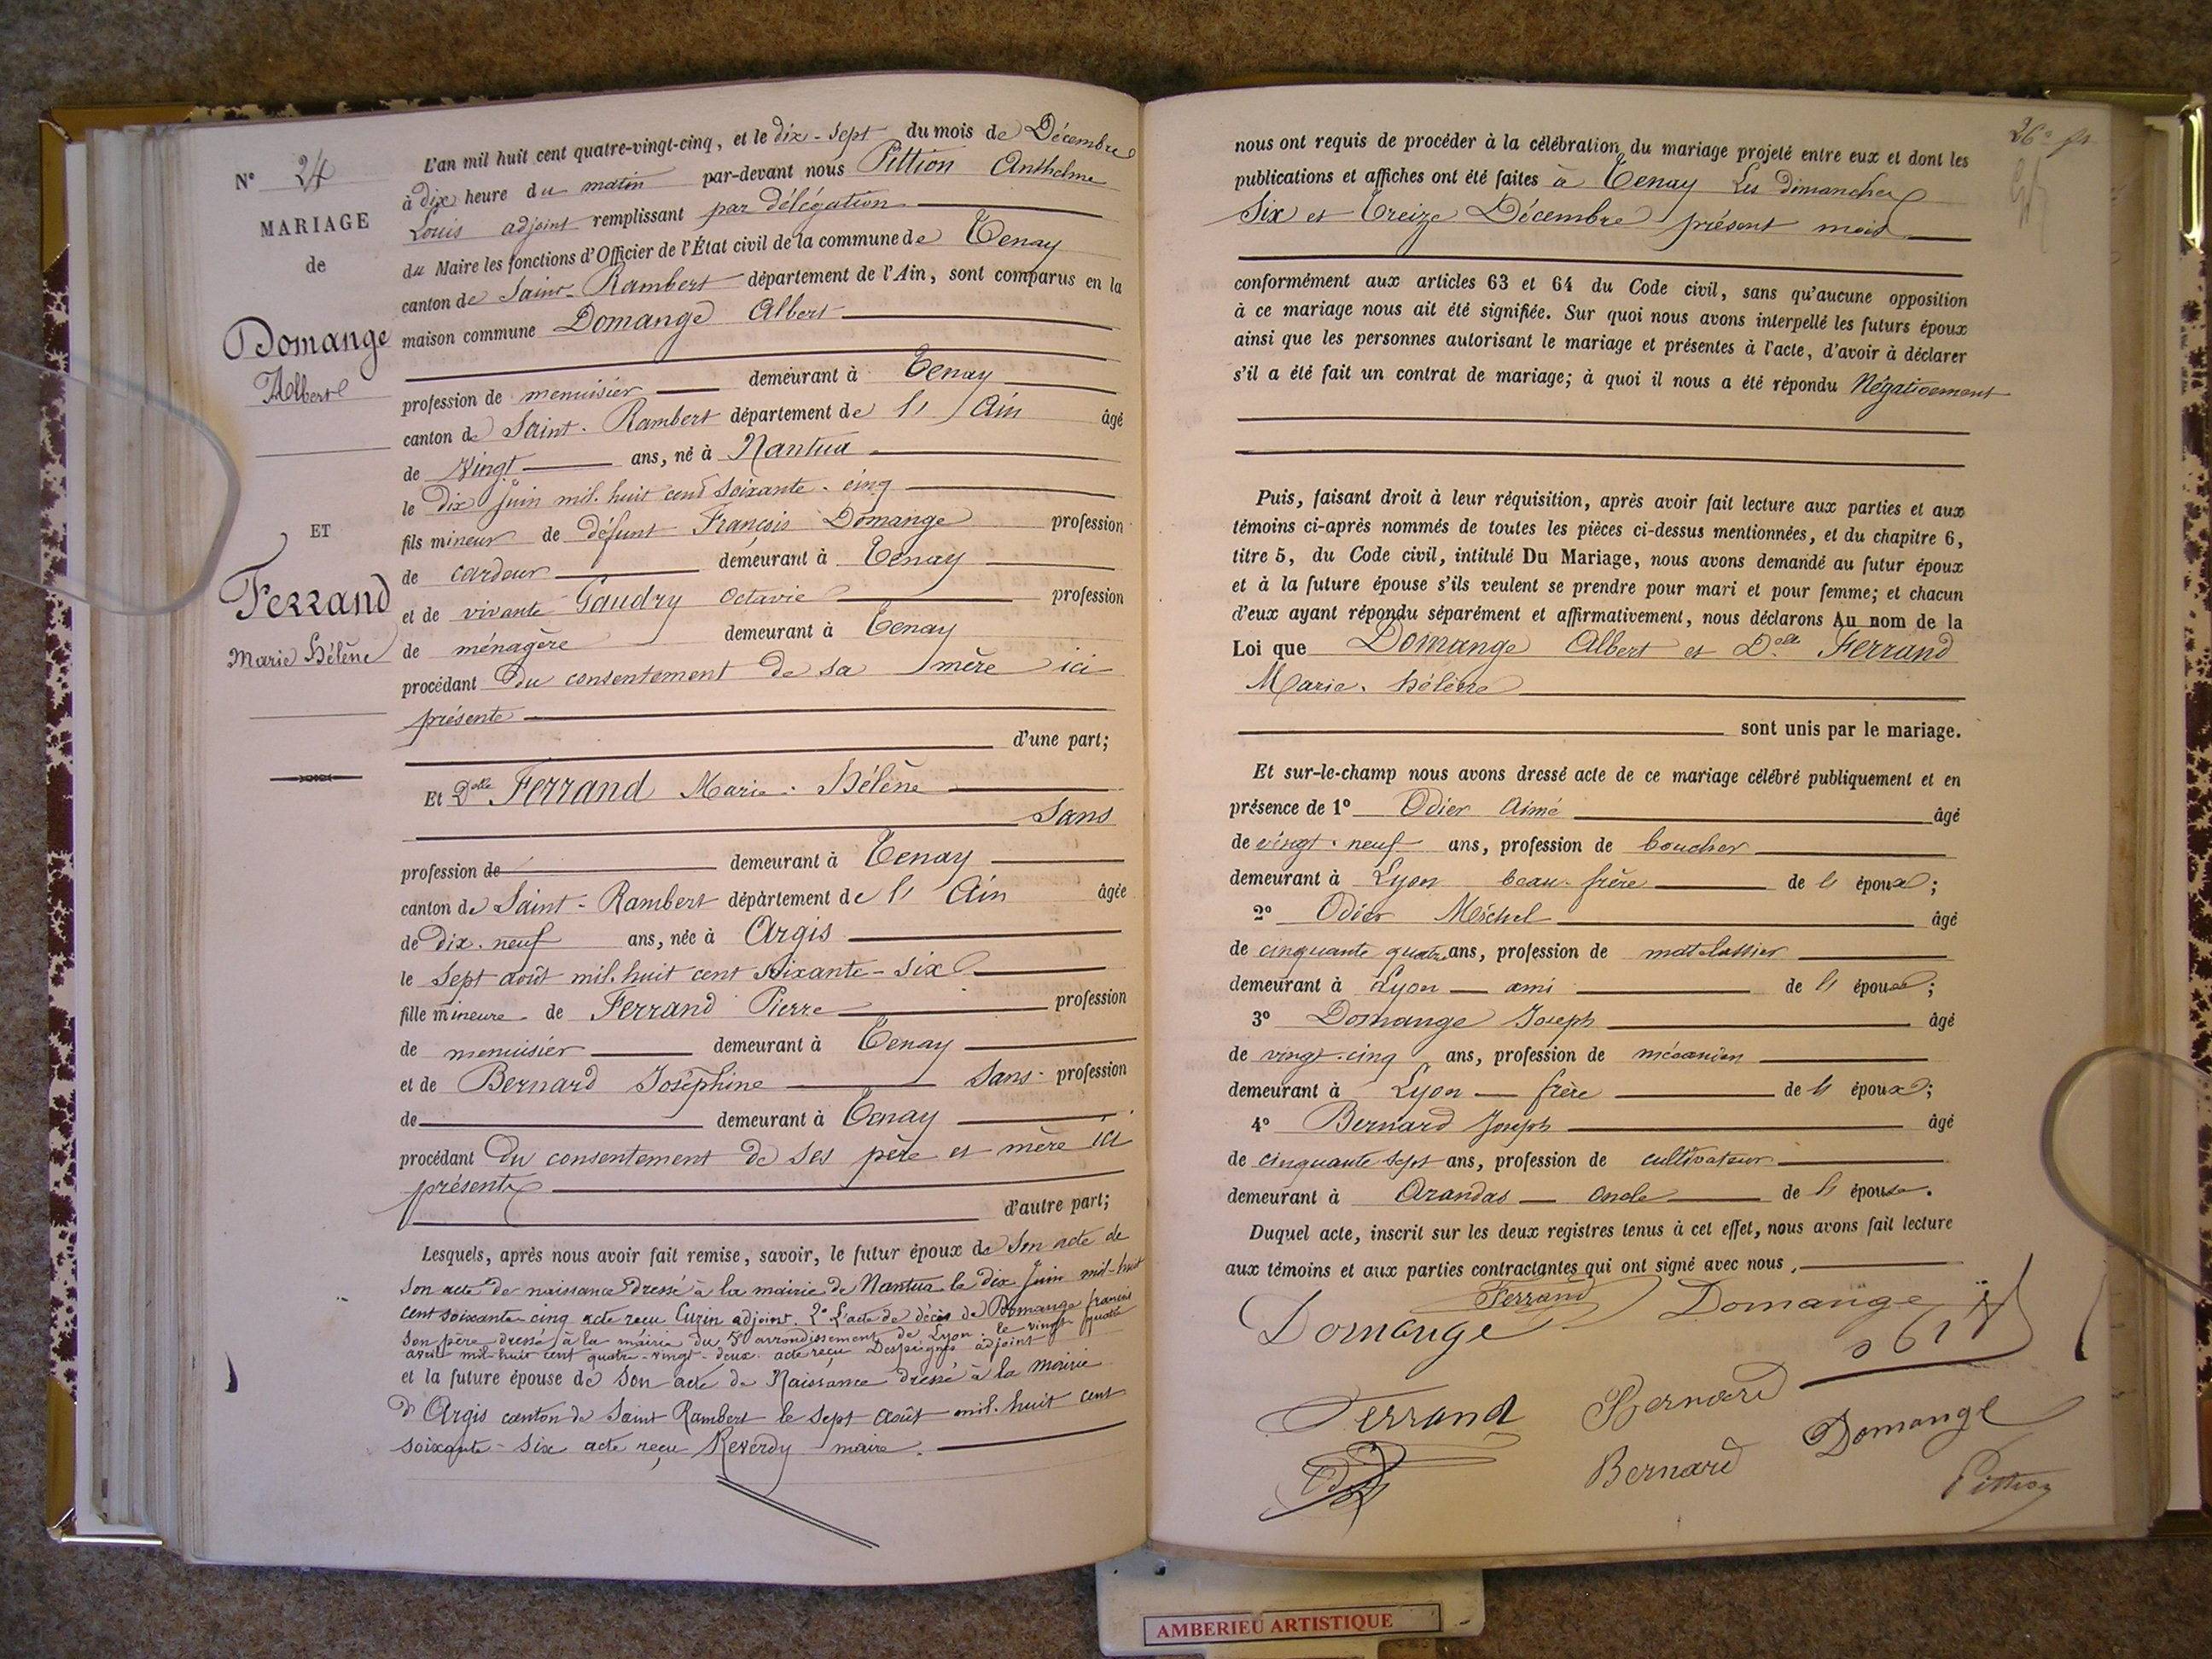 N° 24
MARIAGE
de
Domange
Albert
ET
Ferrand
Marie Hélène
L'an mil huit cent quatre-vingt-cinq, et le dix-sept du mois de Décembre
à dix heure du matin par-devant nous Pittion Anthelme
Louis adjoint remplissant par délégation
du Maire les fonctions d'Officier de l'État civil de la commune de Tenay
canton de Saint-Rambert département de l'Ain, sont comparus en la
maison commune Domange Albert
profession de menuisier demeurant à Tenay
canton de Saint-Rambert département de l'Ain âgé
de vingt ans, né à Nantua
le dix juin mil huit cent soixante-cinq
fils mineur de défunt François Domange profession
de cardeur demeurant à Tenay
et de vivante Gaudry Octavie profession
de ménagère demeurant à Tenay
procédant du consentement de sa mère ici
présente
d'une part;
Et Dolle Ferrand Marie-Hélène
Sans
profession de demeurant à Tenay
canton de Saint-Rambert département de l'Ain âgée
de dix-neuf ans, née à Argis
le sept août mil huit cent soixante-six
fille mineure de Ferrand Pierre profession
de menuisier demeurant à Tenay
et de Bernard Joséphine Sans profession
de demeurant à Tenay
procédant du consentement de ses père et mère ici
présents
d'autre part;
Lesquels, après nous avoir fait remise, savoir, le futur époux de Son acte de
Son acte de naissance dressé à la mairie de Nantua le dix Juin mil-huit
cent soixante-cinq acte reçu Cuzin adjoint. 2° L'acte de décès de Domange francois
Son père dressé à la mairie du 5e arrondissement de Lyon le vingt-quatre
avril mil-huit cent quatre-vingt-deux acte reçu Despeignes adjoint
et la future épouse de Son acte de Naissance dressé à la mairie
d'Argis canton de Saint Rambert le sept août mil huit cent
soixante-six acte reçu Reverdy maire.
nous ont requis de procéder à la célébration du mariage projeté entre eux et dont les
publications et affiches ont été faites à Tenay Les dimanches
Six et Treize Décembre présent mois
conformément aux articles 63 et 64 du Code civil, sans qu'aucune opposition
à ce mariage nous ait été signifiée. Sur quoi nous avons interpellé les futurs époux
ainsi que les personnes autorisant le mariage et présentes à l'acte, d'avoir à déclarer
s'il a été fait un contrat de mariage; à quoi il nous a été répondu Négativement
Puis, faisant droit à leur réquisition, après avoir fait lecture aux parties et aux
témoins ci-après nommés de toutes les pièces ci-dessus mentionnées, et du chapitre 6,
titre 5, du Code civil, intitulé Du Mariage, nous avons demandé au futur époux
et à la future épouse s'ils veulent se prendre pour mari et pour femme; et chacun
d'eux ayant répondu séparément et affirmativement, nous déclarons Au nom de la
Loi que Domange Albert et Dolle Ferrand
Marie-Hélène
sont unis par le mariage.
Et sur-le-champ nous avons dressé acte de ce mariage célébré publiquement et en
présence de 1° Odier Aimé âgé
de vingt-neuf ans, profession de boucher
demeurant à Lyon beau-frère de l'époux;
2° Odier Michel âgé
de cinquante quatre ans, profession de matelassier
demeurant à Lyon ami de l'époux;
3° Domange Joseph âgé
de vingt-cinq ans, profession de mécanicien
demeurant à Lyon frère de l'époux;
4° Bernard Joseph âgé
de cinquante sept ans, profession de cultivateur
demeurant à Arandas oncle de l'épouse.
Duquel acte, inscrit sur les deux registres tenus à cet effet, nous avons fait lecture
aux témoins et aux parties contractantes qui ont signé avec nous,
Ferrand Domange
Domange
Ferrand Bernard
Domange
Bernard
Pittion
AMBERIEU ARTISTIQUE